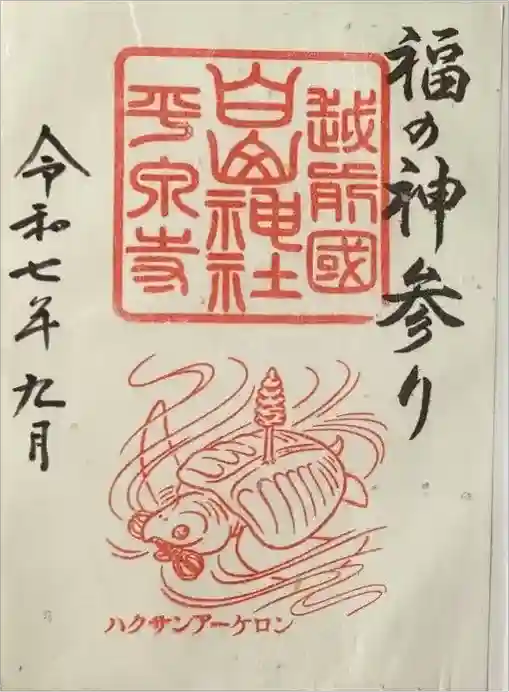 福の神参り
越前國
白山神社
平泉寺
令和七年九月
ハクサンアーケロン